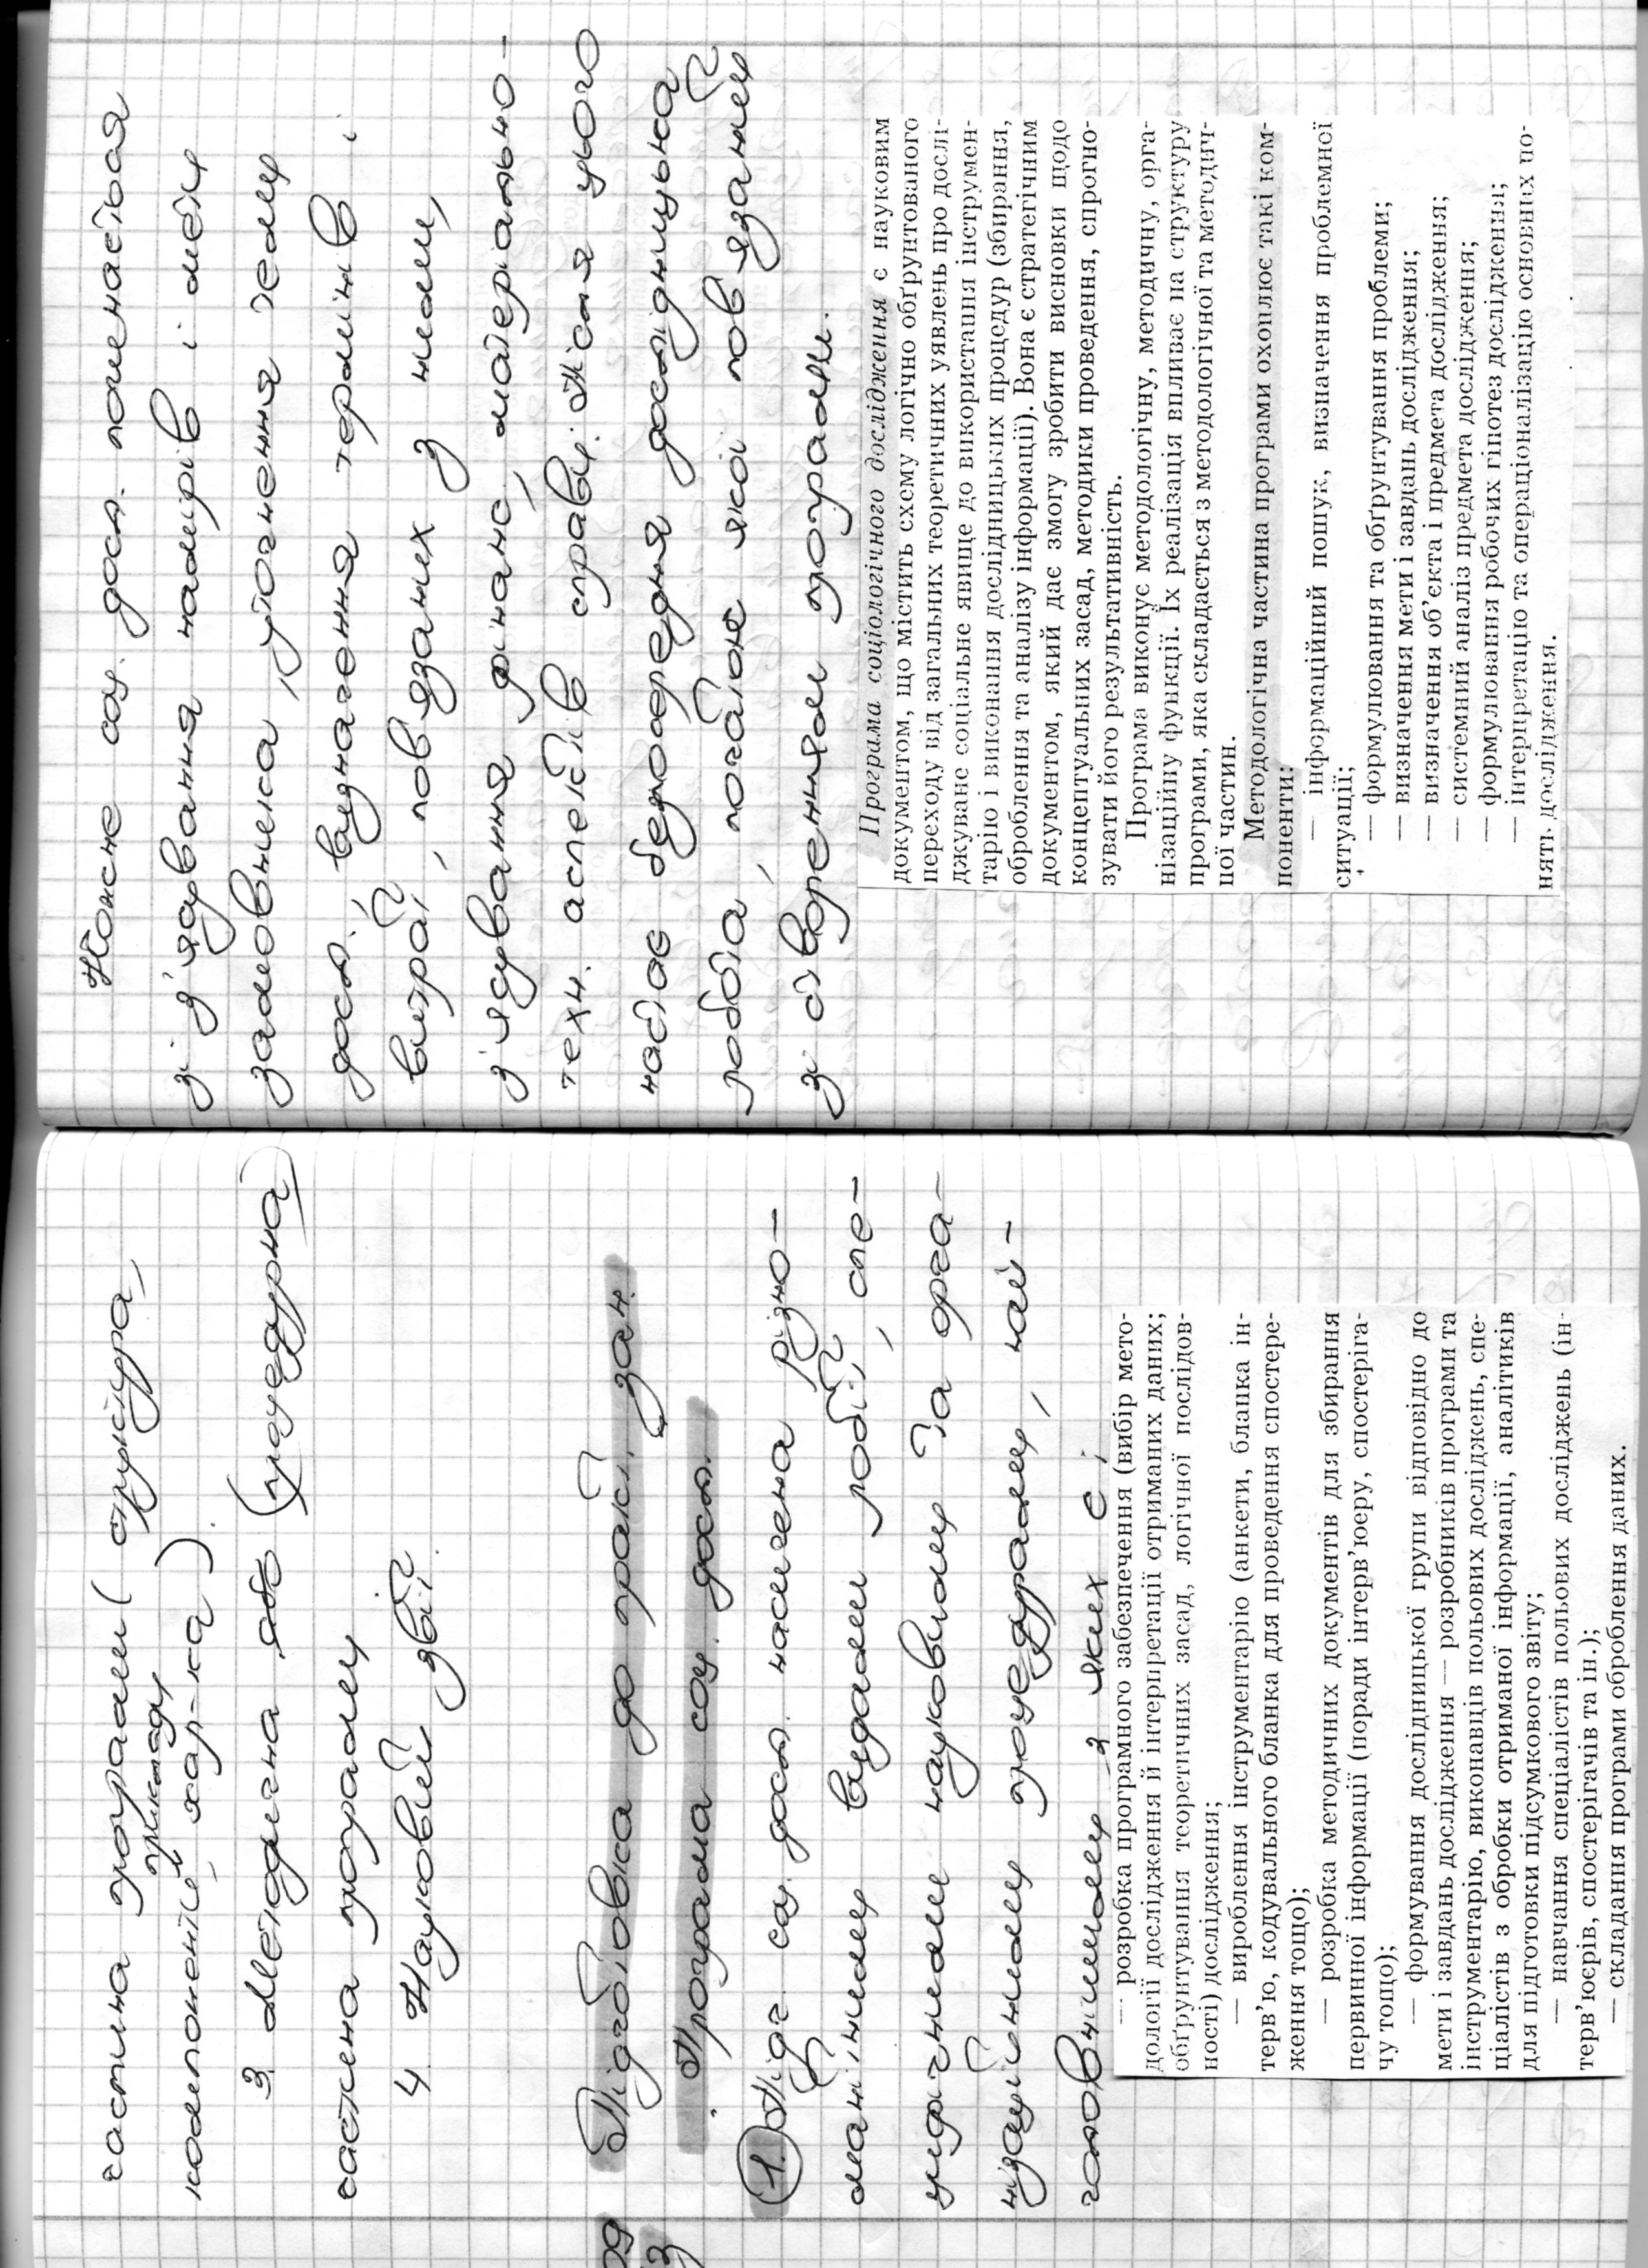 частина програми (структура,
приклади
компонентів, хар-ка).
3. Методична або (процедурна)
частина програми
4. Науковий звіт.
09
3
Підготовка до практ. зан.
Програма соц. досл.
1. Підг. соц. досл. насичена різно-
манітними видами робіт, спе-
цифічними науковими та орга-
нізаційними процедурами, най-
головнішими з яких є:
— розробка програмного забезпечення (вибір мето-
дології дослідження й інтерпретації отриманих даних;
обґрунтування теоретичних засад, логічної послідов-
ності) дослідження;
— вироблення інструментарію (анкети, бланка ін-
терв’ю, кодувального бланка для проведення спостере-
ження тощо);
— розробка методичних документів для збирання
первинної інформації (поради інтерв’юеру, спостеріга-
чу тощо);
— формування дослідницької групи відповідно до
мети і завдань дослідження — розробників програми та
інструментарію, виконавців польових досліджень, спе-
ціалістів з обробки отриманої інформації, аналітиків
для підготовки підсумкового звіту;
— навчання спеціалістів польових досліджень (ін-
терв’юєрів, спостерігачів та ін.);
— складання програми оброблення даних.
Кожне соц. досл. починається
зі з'ясування намірів і мети
замовника, уточнення теми
досл., визначення термінів і
витрат, пов'язаних з ними,
з'ясування фінанс., матеріально-
техн. аспектів справи. Після цього
настає безпосередня дослідницька
робота, початок якої пов'язаний
зі створенням програми.
Програма соціологічного дослідження є науковим
документом, що містить схему логічно обґрунтованого
переходу від загальних теоретичних уявлень про дослі-
джуване соціальне явище до використання інструмен-
тарію і виконання дослідницьких процедур (збирання,
оброблення та аналізу інформації). Вона є стратегічним
документом, який дає змогу зробити висновки щодо
концептуальних засад, методики проведення, спрогно-
зувати його результативність.
Програма виконує методологічну, методичну, орга-
нізаційну функції. Їх реалізація впливає на структуру
програми, яка складається з методологічної та методич-
ної частин.
Методологічна частина програми охоплює такі ком-
поненти:
— інформаційний пошук, визначення проблемної
ситуації;
— формулювання та обґрунтування проблеми;
— визначення мети і завдань дослідження;
— визначення об’єкта і предмета дослідження;
— системний аналіз предмета дослідження;
— формулювання робочих гіпотез дослідження;
— інтерпретацію та операціоналізацію основних по-
нять дослідження.